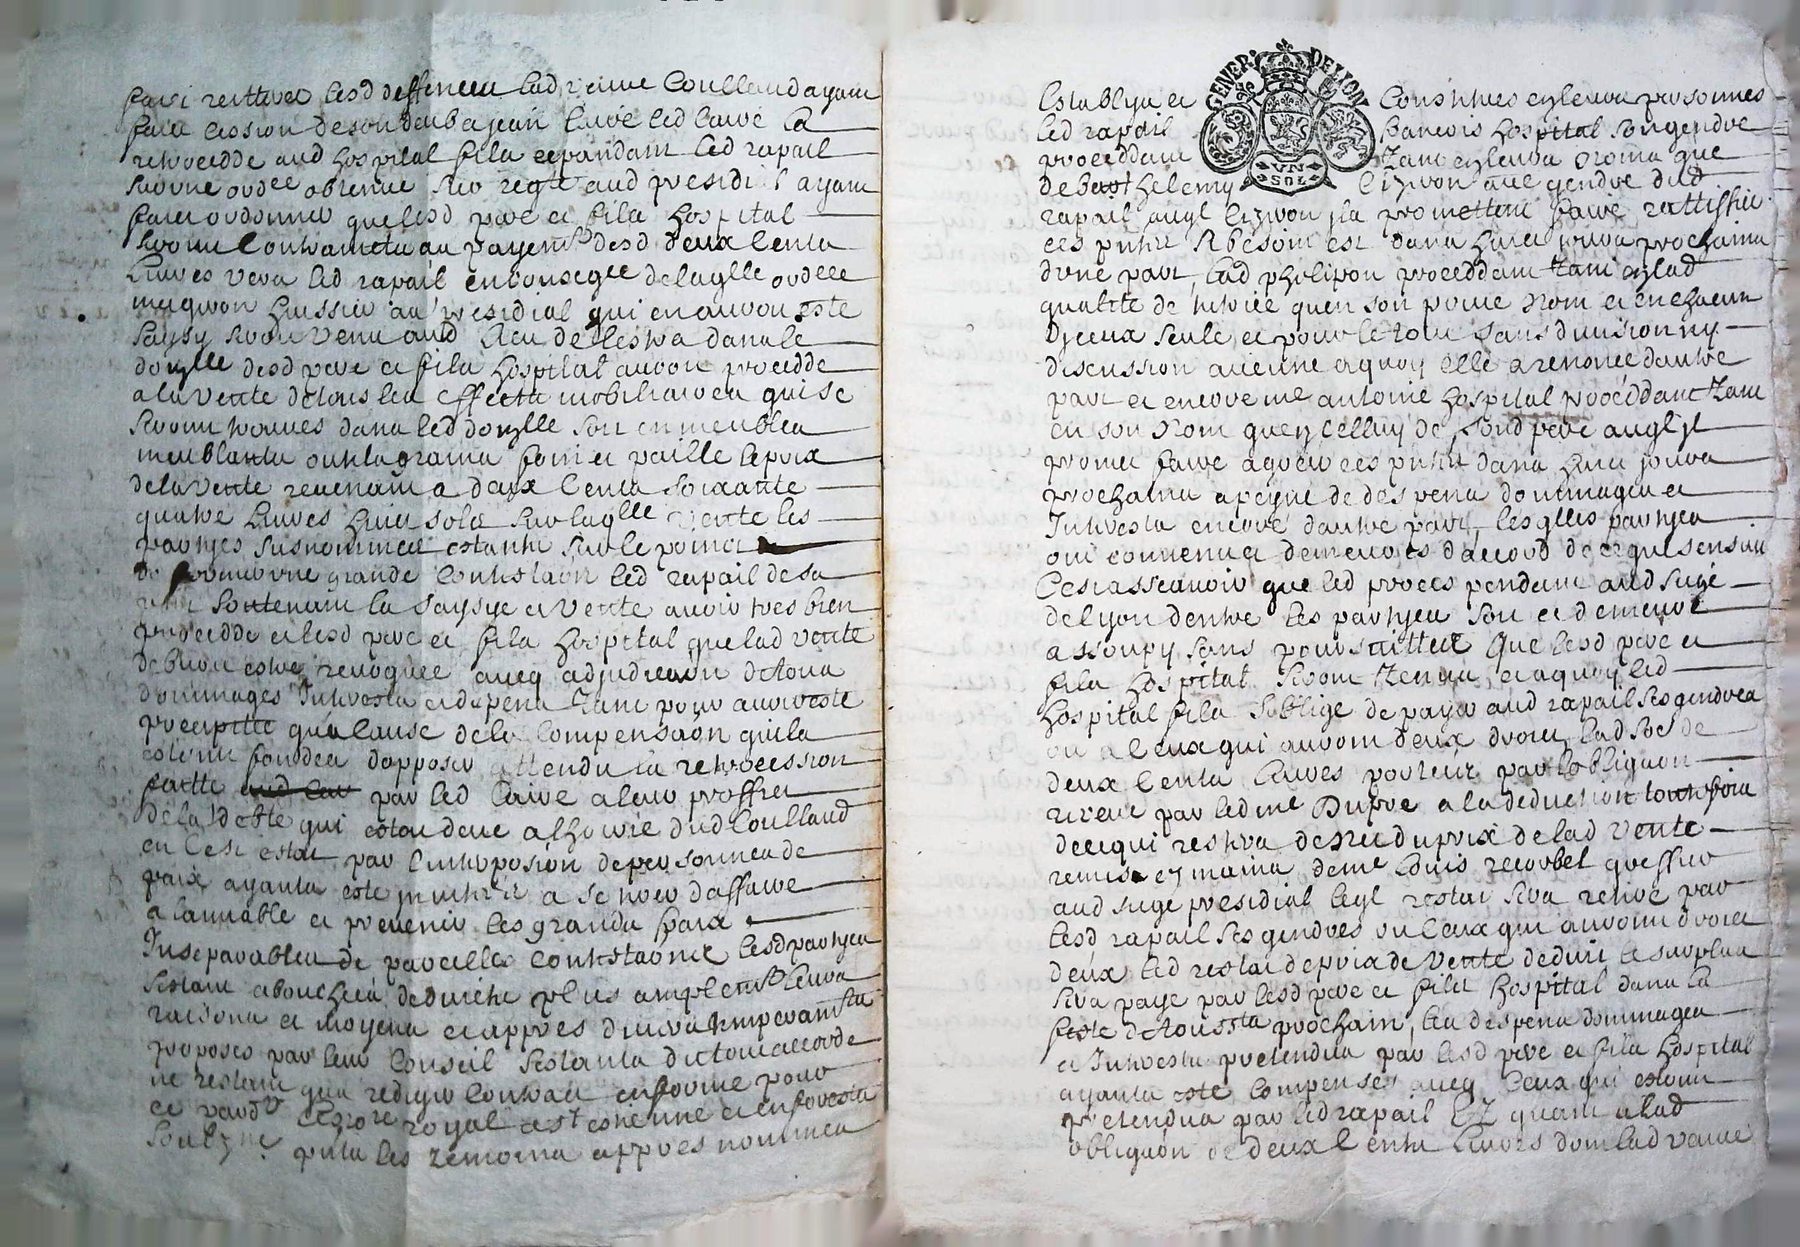 faire cession de son deub a jean Cuive led Cuive la
retrocedde aud hospital fils cependant led rapail
suivne ordee obtenue sur regte aud presidial ayant
faict ordonner que lesd pere et fils hospital
seront contraincts au payemt desd deux cents
Livres vera led rapail en consegce de laglle ordce
mugnon huissier au presidial qui en auroit este
saysy seroit venu aud lieu de lestra dans le
domylle desd pere et fils hospital auroit procedde
a la vente de tous les effects mobiliaires qui se
seront trouves dans led domylle soit en meubles
meublants outils grains foin et paille le prix
de la vente revenant a deux cents soixante
quatre Livres huict sols sur laglle vente les
partyes susnommees estants sur le poinct
grande contestaon led rapail de sa
part soutenant la saysye et vente avoir tres bien
procedde et lesd pere et fils hospital que lad vente
debvoit estre revoquee avec adjudicaon de tous
dommages Interests et depens tant pour avoir este
precipitte qua cause de la compensaon quils
estoint fondes dopposer attendu la retrocession
faitte aud Cui par led Cuive a leur proffict
de la debte qui estoit deue a lhoirie dud Coulland
en cest estat par linterposion de personnes de
paix ayants este a se sortir daffaire
a lamiable et prevenir les grands fraix
Inseparables de pareilles contestaons lesd partyes
sestant abouchees deduicte plus amplemt leurs
raisons et moyens et appres divers temperaments
proposes par leur Conseil sestants du tout accorde
ne restant qua rediger contract en forme pour
ce royal est
les temoins appres nommes
GENER DE LION
VN SOL
Establys et Constitues en leurs personnes
led rapail francois hospital son gendre
proceddant tant en leurs noms que
de barthelemy Lizeron aue gendre dud
rapail augl Lizeron ils promettent faire rattiffier
ces pnts si besoin est dans huict jours prochains
dune part, lad philipon proceddant tant en lad
qualitte de tutrice quen son prime nom et en chacun
Diceux seule et pour le tout sans division ny
discussion aucune a quoy elle a renonce dautre
part et encore me antoine hospital proceddant tant
en son nom quen celluy de sond pere augl il
promet faire agreer ces pnts dans huict jours
prochains a peyne de despens dommages et
Interests encore dautre part, lesglles partyes
ont convenu et demeures dacord de ce que sensuit
Cest asseavoir que led proces pendant aud siege
de lyon dentre les partyes soit et demeure
assoupy sans poursuitte que lesd pere et
fils hospital seront tenus et a quoy led
hospital fils soblige de payer aud rapail ses gendres
ou a ceux qui auront deux droict lad soe de
deux cents Livres porteur par lobligaon
receue par led me Dupre a la deduction touttefois
de ce qui restra de net du prix de lad vente
remise en mains de me Louis recorbet greffier
aud siege presidial legl restat sera retire par
lesd rapail ses gendres ou ceux qui auront droict
deux led restat de prix de vente deduit le surplus
sera paye par lesd pere et fils hospital dans la
feste de toussts prochain, les despens dommages
et Interests pretendus par lesd pere et fils hospital
ayants este compenses avec ceux qui estoint
pretendus par led rapail Et quant a lad
obligaon de deux cents Livres dont lad veuve